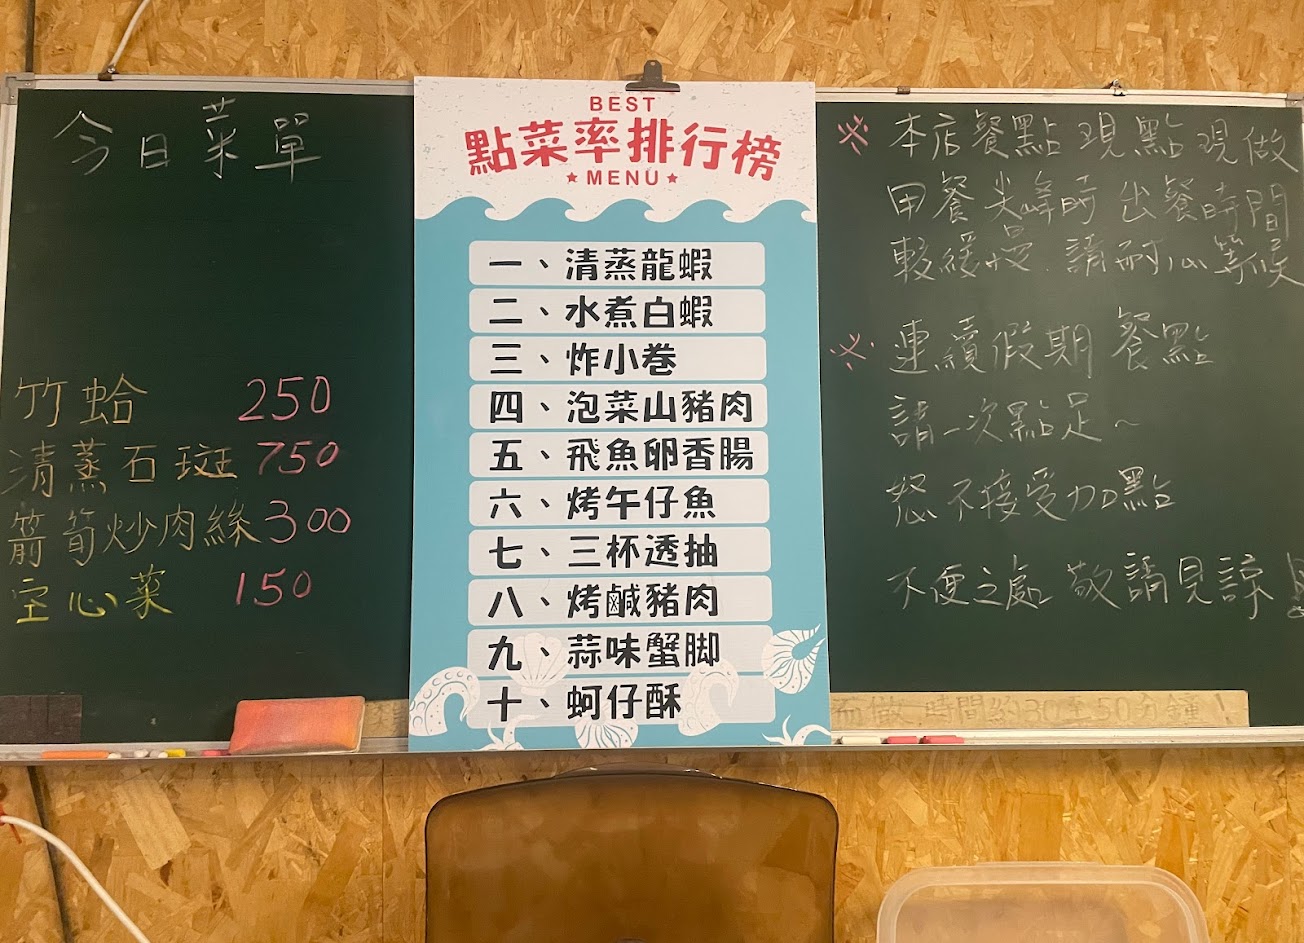 今日菜單
竹蛤 250
清蒸石斑 750
箭筍炒肉絲 300
空心菜 150
BEST
點菜率排行榜
★MENU★
一、清蒸龍蝦
二、水煮白蝦
三、炸小卷
四、泡菜山豬肉
五、飛魚卵香腸
六、烤午仔魚
七、三杯透抽
八、烤鹹豬肉
九、蒜味蟹脚
十、蚵仔酥
※本店餐點現點現做
用餐尖峰時出餐時間
較緩慢.請耐心等候
※連續假期餐點
請一次點足~
恕不接受加點
不便之處敬請見諒!